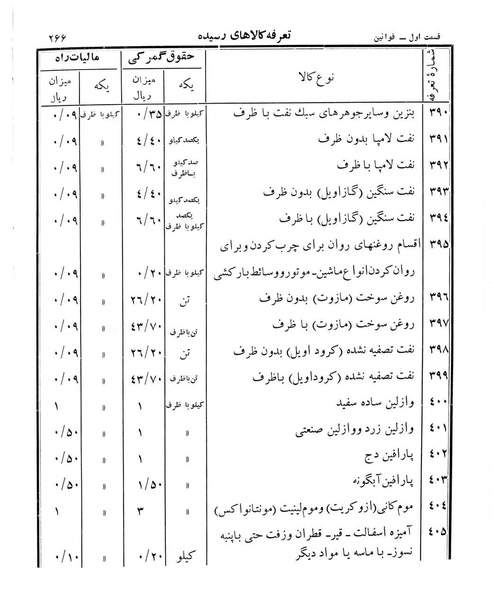 قسمت اول ــ قوانین تعرفه کالاهای رسیده ۲۶۶
شمارۀ تعرفه نوع کالا حقوق گمرکی مالیات راه
یکه میزان ریال یکه میزان ریال
۳۹۰ بنزین وسایرجوهرهای سبك نفت با ظرف کیلو با ظرف ۰/۳۵ کیلو با ظرف ۰/۰۹
۳۹۱ نفت لامپا بدون ظرف یکصدکیلو ٤/٤۰ » ۰/۰۹
۳۹۲ نفت لامپا با ظرف صدکیلو باظرف ٦/٦۰ » ۰/۰۹
۳۹۳ نفت سنگین (گازاویل) بدون ظرف یکصدکیلو ٤/٤۰ » ۰/۰۹
۳۹٤ نفت سنگین (گازاویل) با ظرف یکصد کیلو با ظرف ٦/٦۰ » ۰/۰۹
۳۹٥ اقسام روغنهای روان برای چرب کردن و برای
روان کردن انواع ماشین‌ـ موتور و وسائط بارکشی کیلو با ظرف ۰/۲۰ » ۰/۰۹
۳۹٦ روغن سوخت (مازوت) بدون ظرف تن ۲٦/۲۰ » ۰/۰۹
۳۹۷ روغن سوخت (مازوت) با ظرف تن با ظرف ٤۳/۷۰ » ۰/۰۹
۳۹۸ نفت تصفیه نشده (کرود اویل) بدون ظرف تن ۲٦/۲۰ » ۰/۰۹
۳۹۹ نفت تصفیه نشده (کروداویل) باظرف تن باظرف ٤۳/۷۰ » ۰/۰۹
٤۰۰ وازلین ساده سفید کیلو با ظرف ۱ » ۱
٤۰۱ وازلین زرد و وازلین صنعتی » ۱ » ۰/٥۰
٤۰۲ پارافین دج » ۱ » ۰/٥۰
٤۰۳ پارافین آبگونه » ۱/٥۰ » ۰/٥۰
٤۰٤ موم‌کانی (ازوکریت) وموم لینیت (مونتانواکس) » ۳ » ۱
٤۰٥ آمیزه اسفالت ـ قیر ـ قطران وزفت حتی با پنبه
نسوز ـ با ماسه یا مواد دیگر کیلو ۰/۲۰ » ۰/۱۰